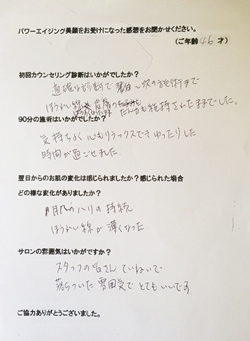 パワーエイジング美顔をお受けになった感想をお聞かせください。
(ご年齢 46 才)
初回カウンセリング診断はいかがでしたか?
次の施術まで
ほうれい線
維持されたままでした。
90分の施術はいかがでしたか?
気持ちよく 心もリラックスでき ゆったりした
時間が過ごせました
翌日からのお肌の変化は感じられましたか? 感じられた場合
どの様な変化がありましたか?
肌へハリの持続
ほうれい線が薄くなった
サロンの雰囲気はいかがですか?
スタッフの皆さん ていねいで
落ちついた 雰囲気で とてもいいです
ご協力ありがとうございました。